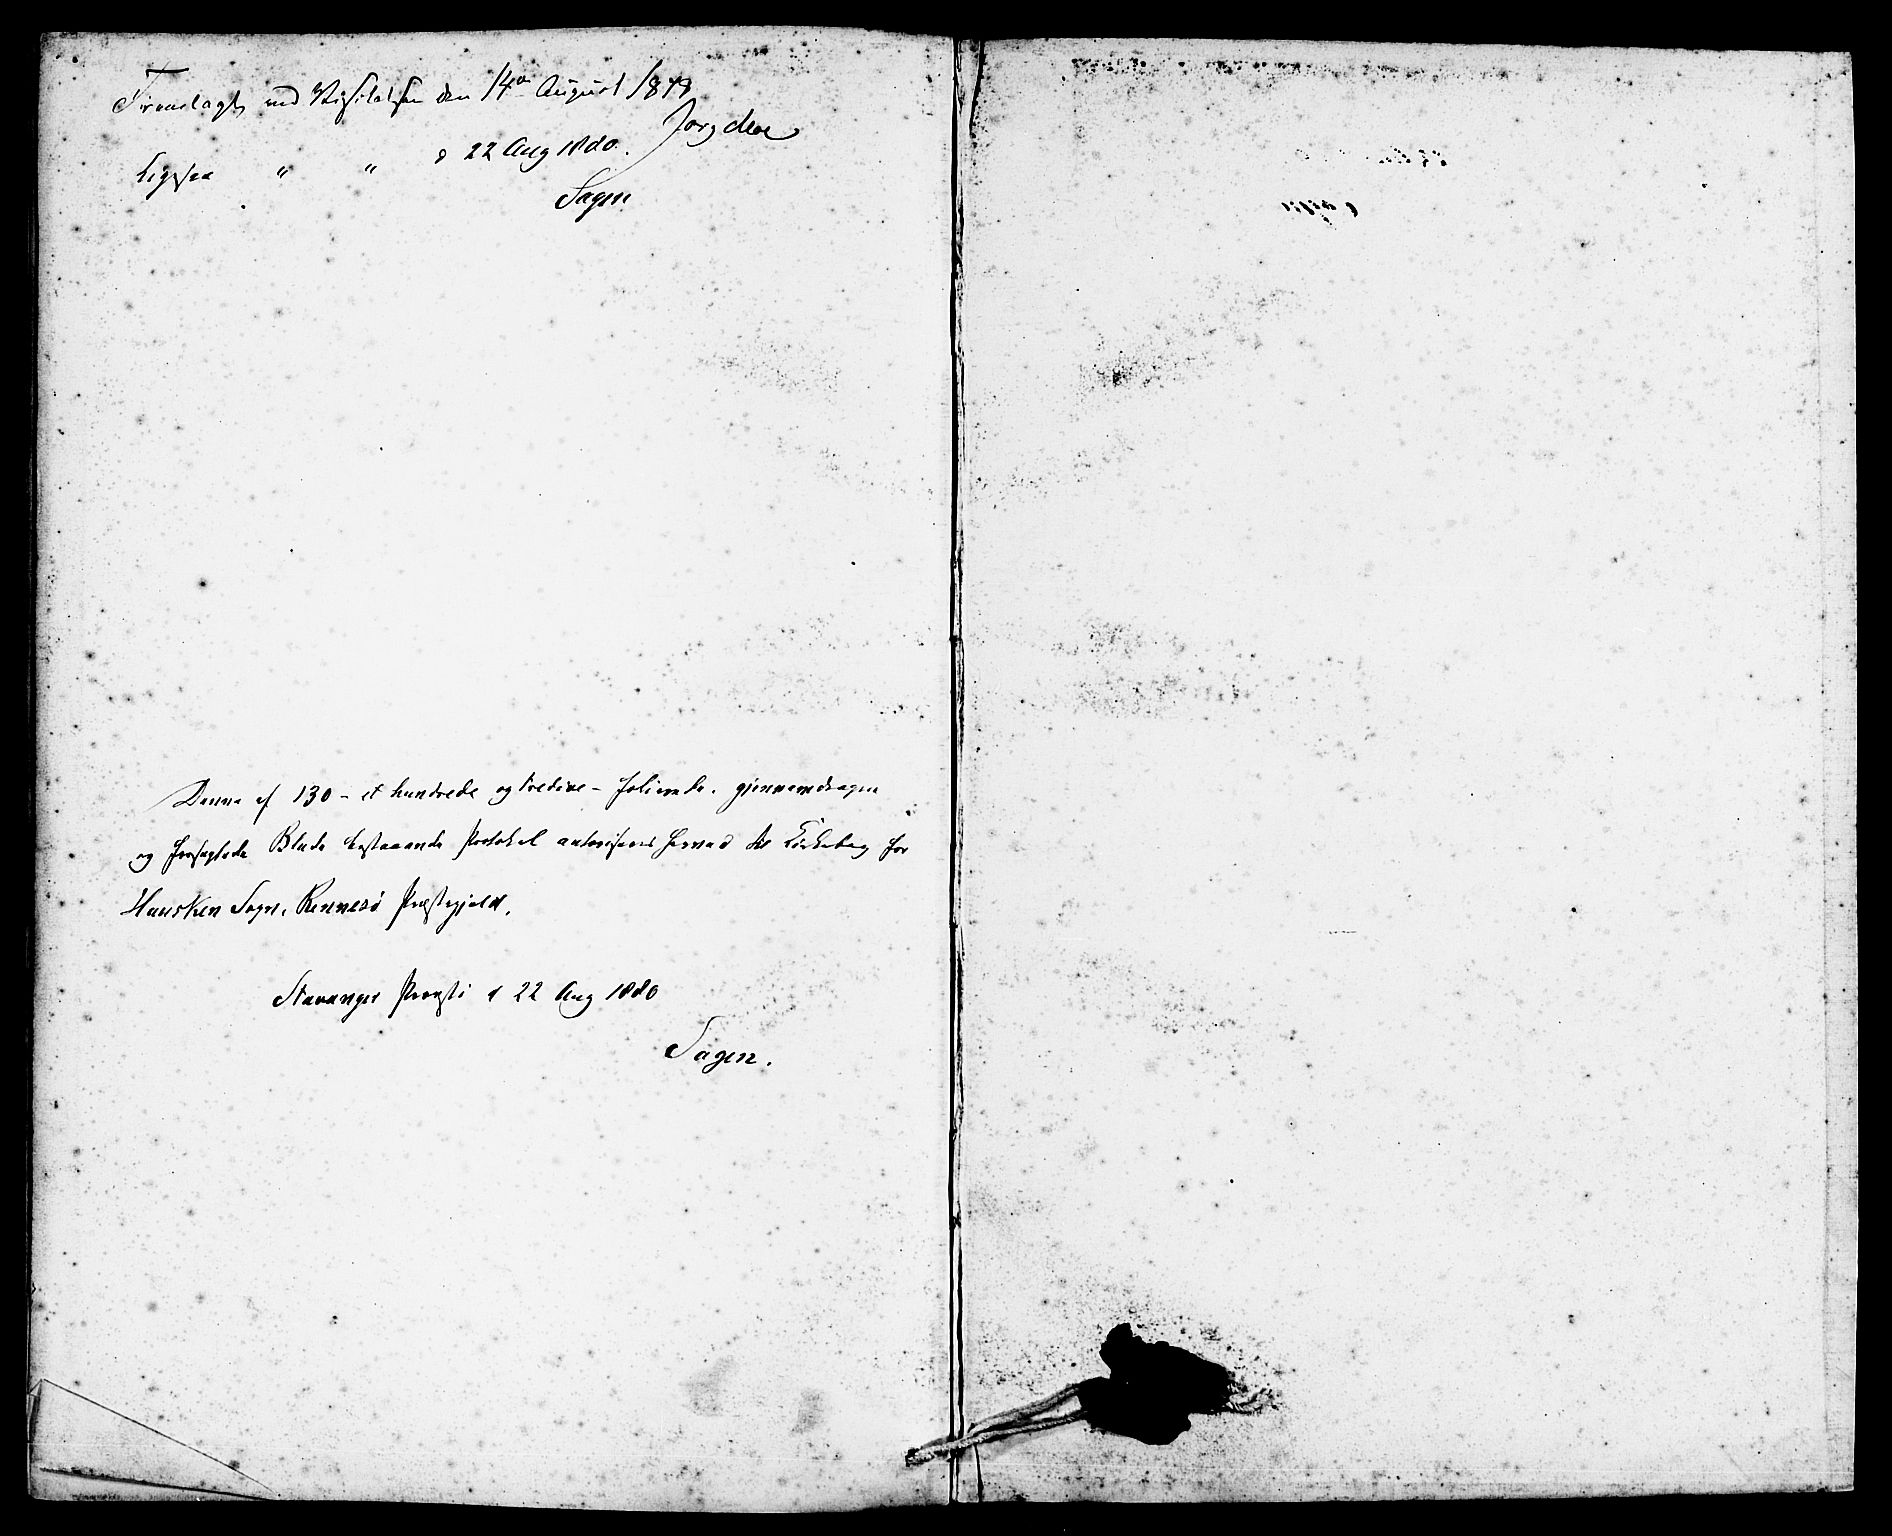 Fremlagt ved Visitatsen den 14de August 1879
Jørgdere
Ligesaa " " d 22 Aug 1880.
Sagen
Denne af 130 - et hundrede og tredive - folierede, gjennemdragne
og forseglede Blade bestaaende Protokol autoriseres herved til Kirkebog for
Hausken Sogn, Rennesø Præstegjeld.
Stavanger Provsti d 22 Aug 1880
Sagen.